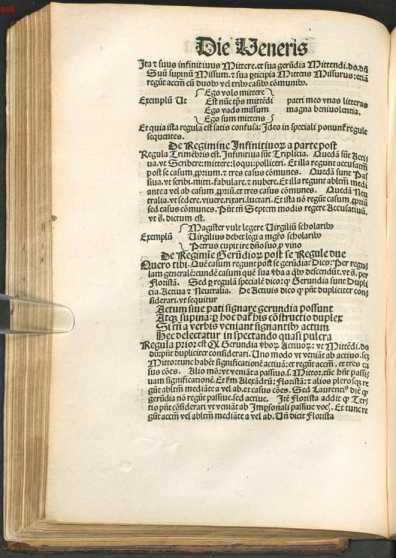 Die Veneris
Ita ⁊ suus infinitiuus Mittere. et sua gerũdia Mittendi. do. dũ
Suũ supinũ Missum. ⁊ sua pticipia Mittens Missurus: etiã
regũt accm̃ cũ duobꝰ vel tribꝰ casibꝰ cõmunibꝰ.
Ego volo mittere
Exemplũ Ut Est nũc tp̃s mittẽdi patri meo vnas litteras
Ego vado missum magna beniuolentia.
Ego sum mittens
Et quia ista regula est satis confusa: Ideo in speciali ponunt̃ regule
sequentes.
De Regimine Infinitiuoꝝ a parte post
Regula Trimẽbris est. Infinitiuuʒ sũt Triplicia. Quedã sũt Acti
ua. vt Scribere: mittere: loqui: polliceri. Et illa regunt accusatm̃
post se casum ꝓrium. ⁊ tres casus cõmunes. Quedã sunt Pas
siua. vt scribi. mitti. fabulari. ⁊ nubere. Et illa regunt abltm̃ medi
ante a vel ab casum ꝓriũ. et tres casus cõmunes. Quedã Neu
tralia. vt sedere. viuere. rixari. luctari. Et ista nõ regũt casum ꝓriũ
sed casus cõmunes. Pñt tñ Septem modis regere Accusatiuũ.
vt s̃. dictum est.
Magister vult legere Virgiliũ scholaribꝰ
Exemplũ Virgilius debet legi a mgr̃o scholaribꝰ
Petrus cupit ire dño suo ꝓ vino
De Regimine Gerũdioꝝ post se Regule due
Quero tibi. Qué casum regunt post se gerũdia: Dico: Per regu
lam generalẽ: eundẽ casum quẽ sua vba a qbꝰ descendũt. vt s̃. per
Floristã. Sed ꝑ regulã specialẽ dico: ꝙ Gerundia sunt Dupli
cia. Actiua ⁊ Neutralia. De Actiuis dico ꝙ pñt dupliciter con
siderari. vt sequitur
Actum siue pati signare gerundia possunt
Atqʒ supina: ꝓ hoc dat bis cõstructio duplex
Si tñ a verbis veniant signantibꝰ actum
Hec delectatur in spectando quasi pulcra
Regula prior est Gerundia vboꝝ Actiuoꝝ: vt Mittẽdi. do.
dũ: pñt dupliciter considerari. Uno modo vt veniũt ab actiuo. scʒ
Mitto: tunc habẽt significationẽ actiuã: et regũt accm̃. et tres ca
sus cões. Alio mõ: vt veniũt a passiuo. s. Mittor. tũc hñt passi
uam significationẽ. Et sm̃ Alexãdrũ: Floristã: ⁊ alios plerosqʒ re
gũt ablm̃ mediãte a vel ab. et casus cões. Sed Laurenciꝰ dic̃ ꝙ
gerũdia nõ regũt passiue. sed actiue. Itẽ Florista addit ꝙ Ter
tio pñt cõsiderari vt veniũt ab Impsonali passiue voc̃. Et tunc re
gũt accm̃ vel ablm̃ mediãte a vel ab. Uñ dicit Florista